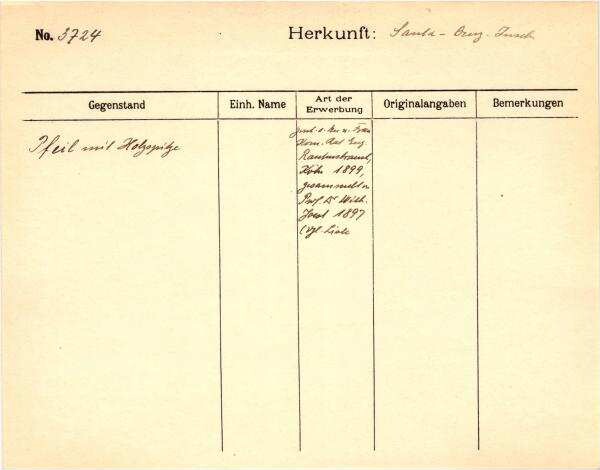 No. 3724
Herkunft: Santa-Cruz-Inseln
Gegenstand
Einh. Name
Art der
Erwerbung
Originalangaben
Bemerkungen
Pfeil mit Holzspitze
Rautenstrauch,
Köln 1899,
gesammelt v.
Prof. Dr. Wilh.
Joest 1897
(vgl. Liste